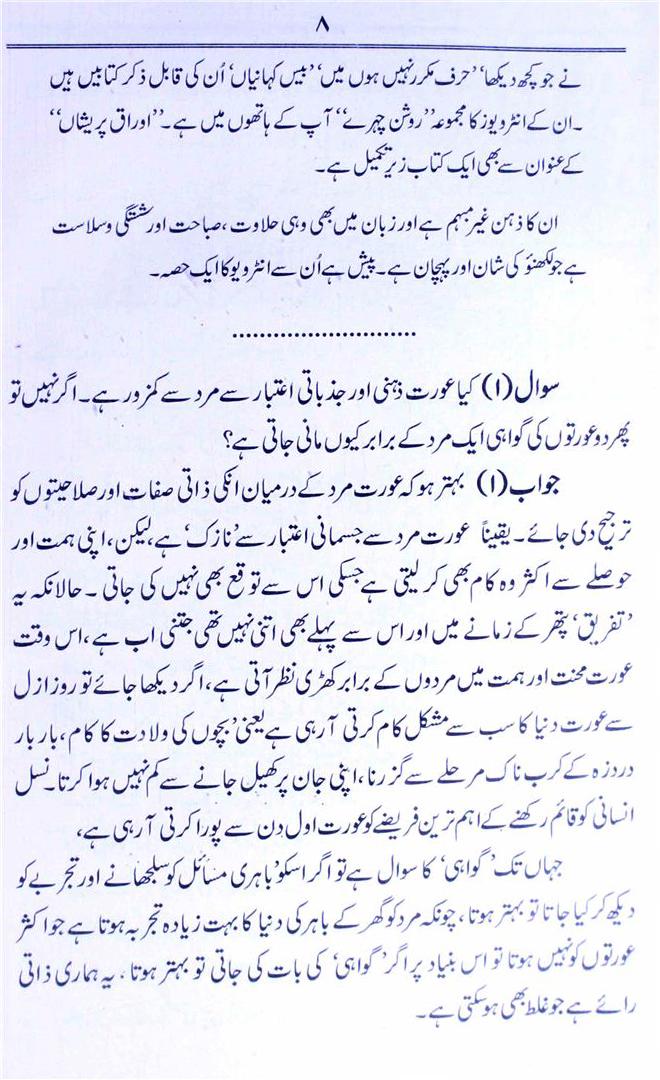 ۸
نے جو کچھ دیکھا‘‘’’حرف مکرر نہیں ہوں میں‘‘’’بیس کہانیاں‘ اُن کی قابل ذکر کتابیں ہیں
۔ان کے انٹرویوز کا مجموعہ’’روشن چہرے‘‘ آپ کے ہاتھوں میں ہے۔’’اوراق پریشاں‘‘
کے عنوان سے بھی ایک کتاب زیر تکمیل ہے۔
ان کا ذہن غیر مبہم ہے اور زبان میں بھی وہی حلاوت ،صباحت اور شستگی وسلاست
ہے جو لکھنؤ کی شان اور پہچان ہے۔پیش ہے اُن سے انٹرویو کا ایک حصہ۔
...........................
سوال(۱) کیا عورت ذہنی اور جذباتی اعتبار سے مرد سے کمزور ہے۔اگر نہیں تو
پھر دو عورتوں کی گواہی ایک مرد کے برابر کیوں مانی جاتی ہے؟
جواب(۱) بہتر ہو کہ عورت مرد کے درمیان انکی ذاتی صفات اور صلاحیتوں کو
ترجیح دی جائے۔یقیناً عورت مرد سے جسمانی اعتبار سے’نازک‘ ہے،لیکن،اپنی ہمت اور
حوصلے سے اکثر وہ کام بھی کر لیتی ہے جسکی اس سے توقع بھی نہیں کی جاتی ۔حالانکہ یہ
’تفریق‘ پتھر کے زمانے میں اور اس سے پہلے بھی اتنی نہیں تھی جتنی اب ہے،اس وقت
عورت محنت اور ہمت میں مردوں کے برابر کھڑی نظر آتی ہے،اگر دیکھا جائے تو روز ازل
سے عورت دنیا کا سب سے مشکل کام کرتی آ رہی ہے یعنی’بچوں کی ولادت کا کام،بار بار
دردزہ کے کرب ناک مرحلے سے گزرنا،اپنی جان پر کھیل جانے سے کم نہیں ہوا کرتا۔نسل
انسانی کو قائم رکھنے کے اہم ترین فریضے کو عورت اول دن سے پورا کرتی آ رہی ہے،
جہاں تک’گواہی‘ کا سوال ہے تو اگر اسکو’باہری مسائل کو سلجھانے اور تجربے کو
دیکھ کر کیا جاتا تو بہتر ہوتا،چونکہ مرد کو گھر کے باہر کی دنیا کا بہت زیادہ تجربہ ہوتا ہے جو اکثر
عورتوں کو نہیں ہوتا تو اس بنیاد پر اگر’گواہی‘ کی بات کی جاتی تو بہتر ہوتا،یہ ہماری ذاتی
رائے ہے جو غلط بھی ہو سکتی ہے۔